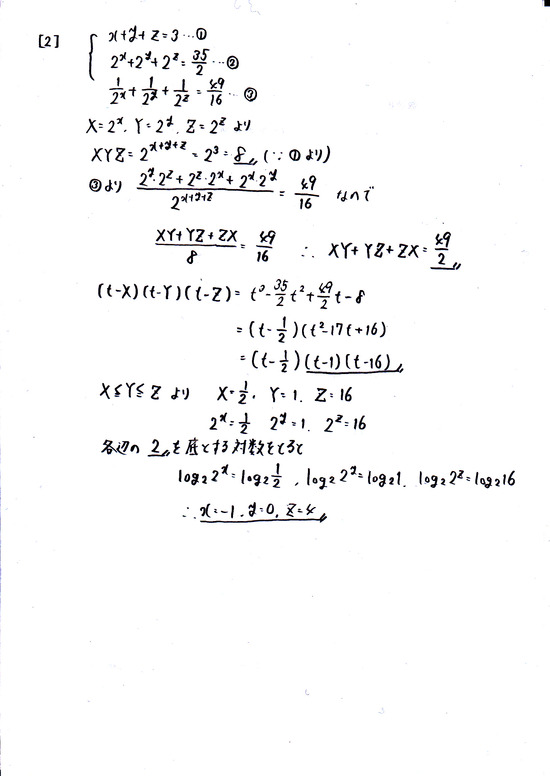 [2] x+y+z=3 …①
2^x+2^y+2^z=35/2 …②
1/2^x+1/2^y+1/2^z=49/16 …③
X=2^x, Y=2^y, Z=2^z より
XYZ=2^{x+y+z}=2^3=8 (∵①より)
③より (2^y・2^z+2^z・2^x+2^x・2^y)/2^{x+y+z}=49/16 なので
(XY+YZ+ZX)/8=49/16 ∴ XY+YZ+ZX=49/2
(t-X)(t-Y)(t-Z)=t^3-35/2t^2+49/2t-8
=(t-1/2)(t^2-17t+16)
=(t-1/2)(t-1)(t-16)
X≦Y≦Z より X=1/2, Y=1, Z=16
2^x=1/2 2^y=1, 2^z=16
各辺の2を底とする対数をとると
log₂2^x=log₂1/2, log₂2^y=log₂1, log₂2^z=log₂16
∴x=-1, y=0, z=4